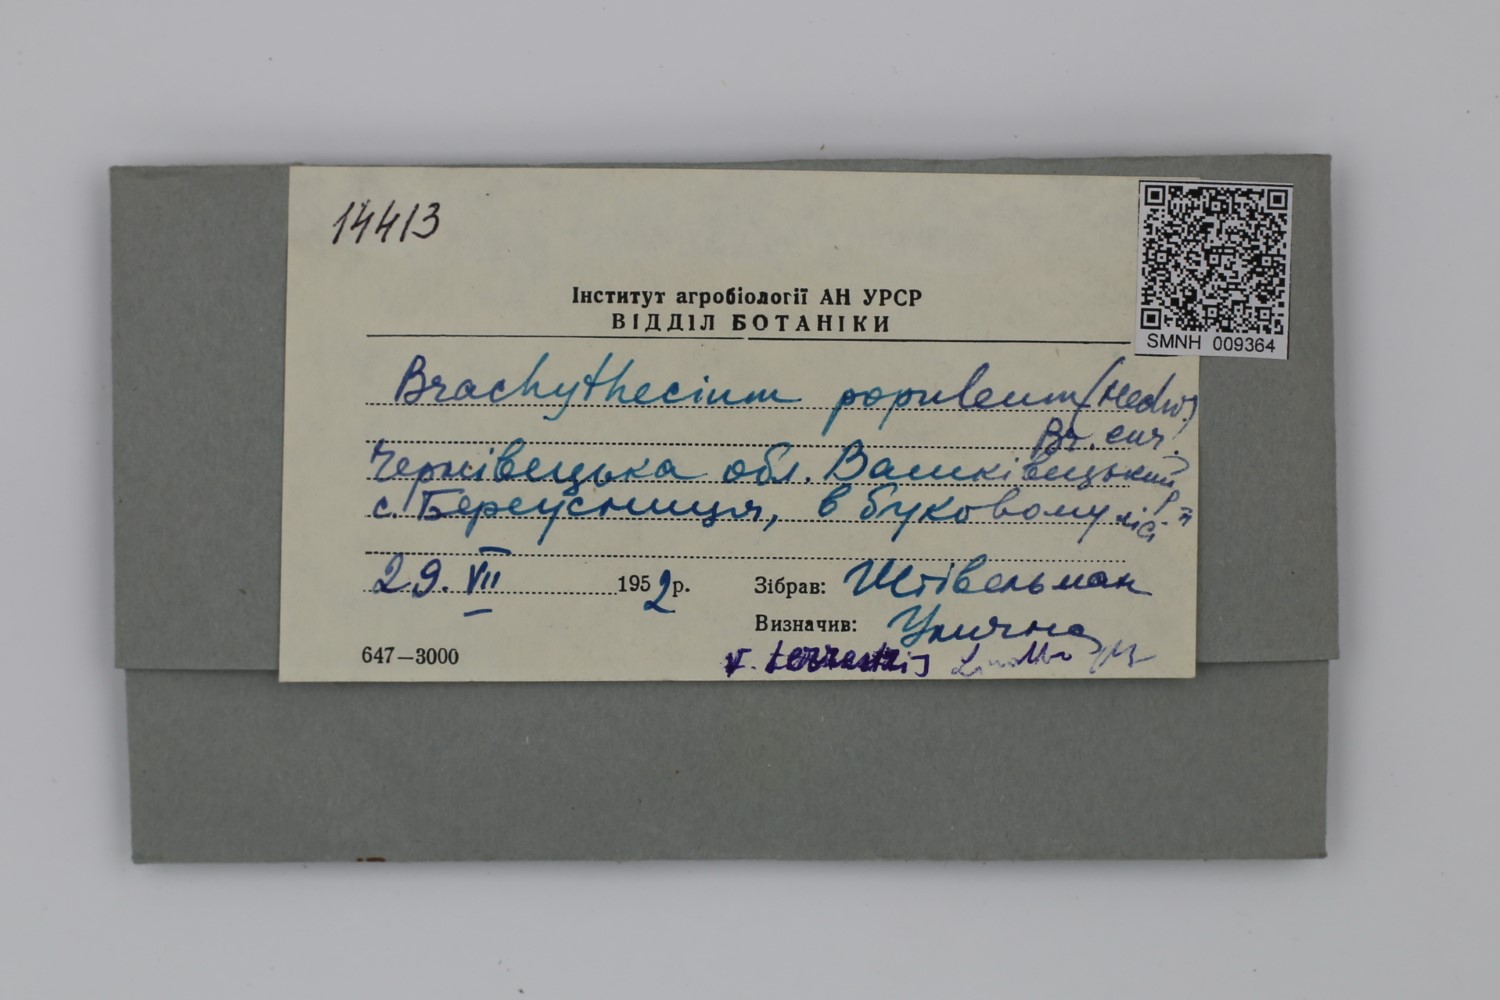 14413
SMNH 009364
Інститут агробіології АН УРСР
ВІДДІЛ БОТАНІКИ
Brachythecium populeum (Hedw.)
Br. eur.
Чернівецька обл. Вашківецький р-н
с. Береусниця, в буковому лісі
29. VII 1952 р. Зібрав: Штівельман
Визначив: Улична
647—3000 v. terrestris